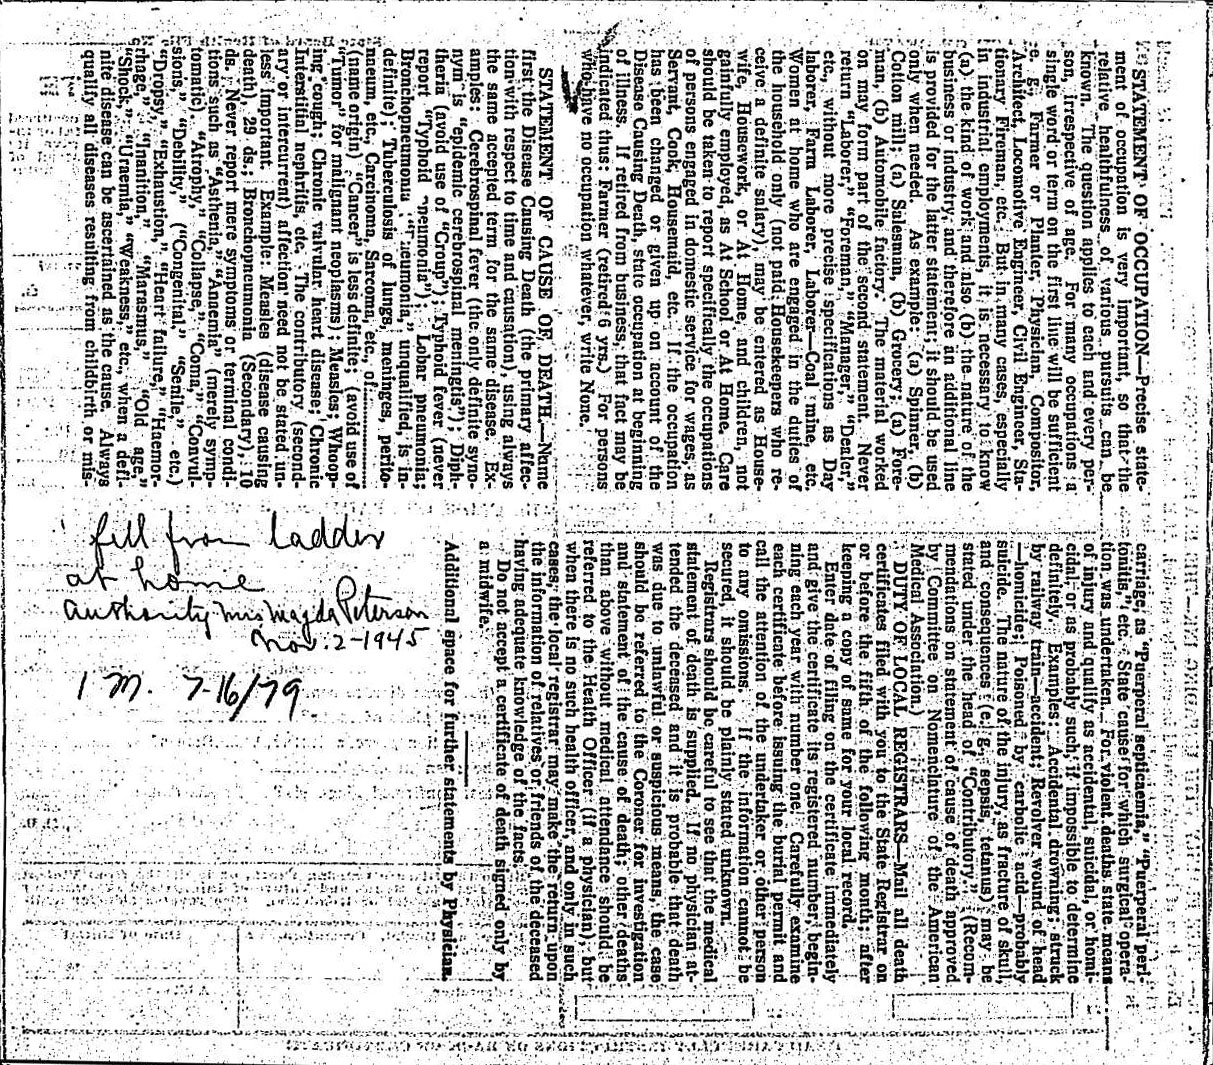 STATEMENT OF OCCUPATION—Precise state-
ment of occupation is very important, so that the
relative healthfulness of various pursuits can be
known. The question applies to each and every per-
son, irrespective of age. For many occupations a
single word or term on the first line will be sufficient
e. g., Farmer or Planter, Physician, Compositor,
Architect, Locomotive Engineer, Civil Engineer, Sta-
tionary Fireman, etc. But in many cases, especially
in industrial employments, it is necessary to know
(a) the kind of work and also (b) the nature of the
business or industry, and therefore an additional line
is provided for the latter statement; it should be used
only when needed. As example: (a) Spinner, (b)
Cotton mill; (a) Salesman, (b) Grocery; (a) Fore-
man, (b) Automobile factory. The material worked
on may form part of the second statement. Never
return "Laborer," "Foreman," "Manager," "Dealer,"
etc., without more precise specifications as Day
laborer, Farm Laborer, Laborer—Coal mine, etc.
Women at home who are engaged in the duties of
the household only (not paid Housekeepers who re-
ceive a definite salary), may be entered as House-
wife, Housework, or At Home, and children, not
gainfully employed, as At School or At Home. Care
should be taken to report specifically the occupations
of persons engaged in domestic service for wages, as
Servant, Cook, Housemaid, etc. If the occupation
has been changed or given up on account of the
Disease Causing Death, state occupation at beginning
of illness. If retired from business, that fact may be
indicated thus: Farmer (retired 6 yrs.) For persons
who have no occupation whatever, write None.
STATEMENT OF CAUSE OF DEATH.—Name
first the Disease Causing Death (the primary affec-
tion with respect to time and causation), using always
the same accepted term for the same disease. Ex-
amples: Cerebrospinal fever (the only definite syno-
nym is "epidemic cerebrospinal meningitis"); Diph-
theria (avoid use of "Croup"); Typhoid fever (never
report "Typhoid pneumonia"); Lobar pneumonia;
Bronchopneumonia ("Pneumonia," unqualified, is in-
definite); Tuberculosis of lungs, meninges, perito-
naeum, etc., Carcinoma, Sarcoma, etc., of
(name origin) "Cancer" is less definite; (avoid use of
"Tumor" for malignant neoplasms); Measles; Whoop-
ing cough; Chronic valvular heart disease; Chronic
Interstitial nephritis, etc. The contributory (second-
ary or intercurrent) affection need not be stated un-
less important. Example: Measles (disease causing
death), 29 ds.; Bronchopneumonia (Secondary), 10
ds. Never report mere symptoms or terminal condi-
tions such as "Asthenia," "Anemia" (merely symp-
tomatic), "Atrophy," "Collapse," "Coma," "Convul-
sions," "Debility," ("Congenital," "Senile," etc.)
"Dropsy," "Exhaustion," "Heart failure," "Haemor-
rhage," "Inanition," "Marasmus," "Old age,"
"Shock," "Uraemia," "Weakness," etc., when a defi-
nite disease can be ascertained as the cause. Always
qualify all diseases resulting from childbirth or mis-
carriage, as "Puerperal septicaemia," "Puerperal peri-
tonitis," etc. State cause for which surgical opera-
tion was undertaken. For violent deaths state means
of injury and qualify as accidental, suicidal, or homi-
cidal, or as probably such, if impossible to determine
definitely. Examples: Accidental drowning; struck
by railway train—accident; Revolver wound of head
—homicide; Poisoned by carbolic acid—probably
suicide. The nature of the injury, as fracture of skull,
and consequences (e. g., sepsis, tetanus) may be
stated under the head of "Contributory." (Recom-
mendations on statement of cause of death approved
by Committee on Nomenclature of the American
Medical Association.)
DUTY OF LOCAL REGISTRARS—Mail all death
certificates filed with you to the State Registrar on
or before the fifth of the following month; after
keeping a copy of same for your local record.
Enter date of filing on the certificate immediately
and give the certificate its registered number, begin-
ning each year with number one. Carefully examine
each certificate before issuing the burial permit and
call the attention of the undertaker or other person
to any omissions. If the information cannot be
secured, it should be plainly stated unknown.
Registrars should be careful to see that the medical
statement of death is supplied. If no physician at-
tended the deceased and it is probable that death
was due to unlawful or suspicious means, the case
should be referred to the Coroner for investigation
and statement of the cause of death; other deaths
than above without medical attendance should be
referred to the Health Officer (if a physician); but
when there is no such health officer, and only in such
cases, the local registrar may make the return upon
the information of relatives or friends of the deceased
having adequate knowledge of the facts.
Do not accept a certificate of death signed only by
a midwife.
Additional space for further statements by Physician.
fell from ladder
at home
authority Mrs Magda Peterson
Nov. 2-1945
I M. 7-16/79